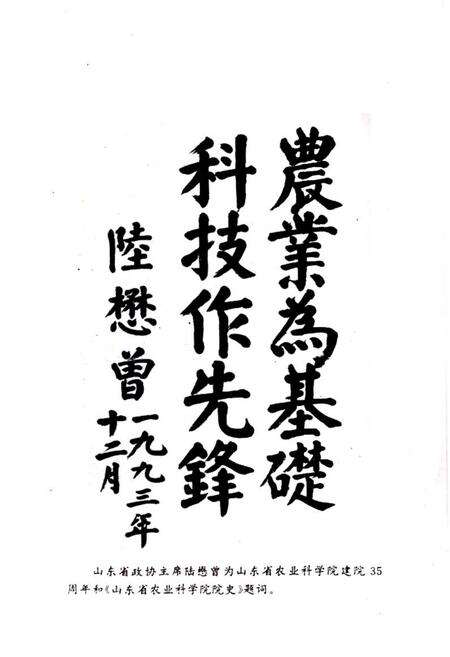 農業為基礎
科技作先鋒
陸懋曾
一九九三年
十二月
山东省政协主席陆懋曾为山东省农业科学院建院 35
周年和《山东省农业科学院院史》题词。